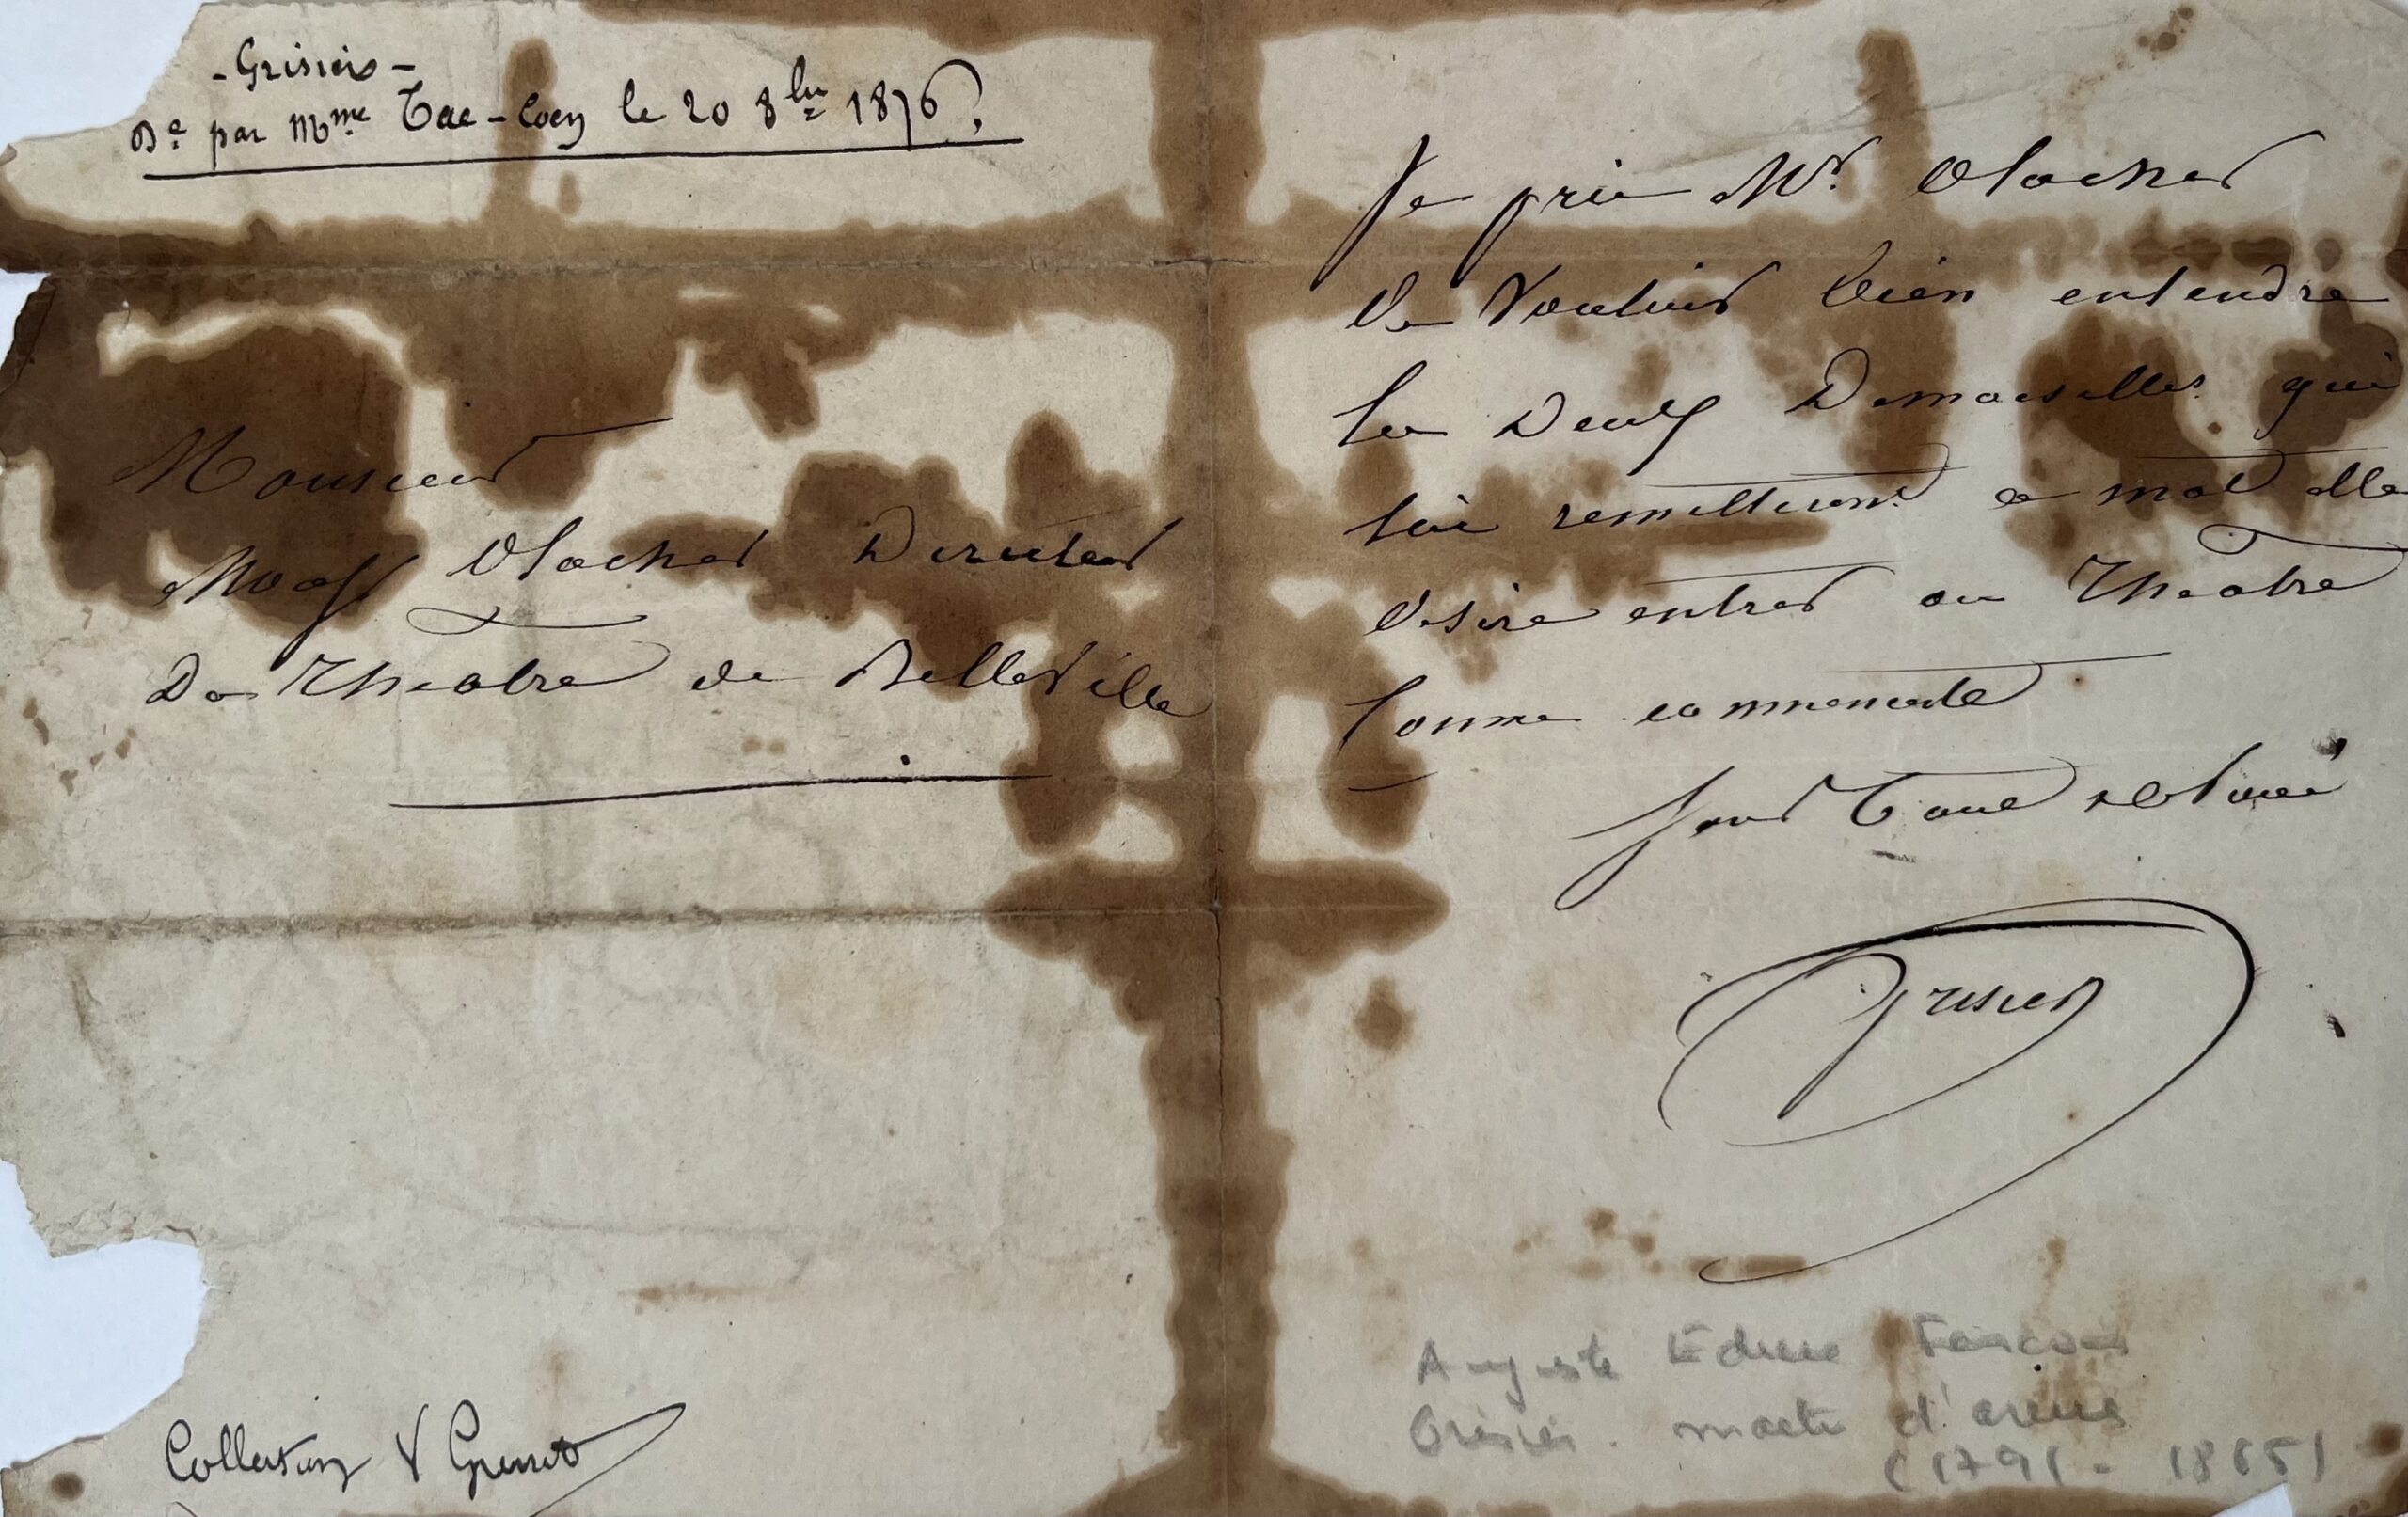 - Grisier -
De par Mme Tac-Coen le 20 8bre 1876.
Monsieur
Holacher Directeur
Du Theatre de Belleville
Collection
Je prie Mr Holacher
de Vouloir bien entendre
les Deux Demoiselles qui
lui remettront ce mot elle
desire entrer au Theatre
comme commencente
Votre Tout devoué
Grisier
Auguste Edme François
Grisier. maitre d'armes
(1791 - 1865)